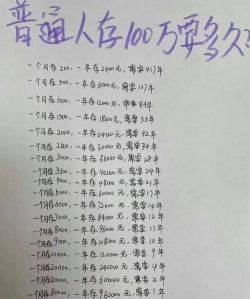 普通人存100万要多久?
一个月存200,一年存2400元,需要417年
一个月存500,一年存6000元,需要167年
一个月存1000,一年存12000元,需要84年
一个月存1500,一年存18000元,需要56年
一个月存2000,一年存24000元,需要42年
一个月存2500,一年存30000元,需要34年
一个月存3000,一年存36000元,需要28年
一个月存3500,一年存42000元,需要24年
一个月存4000,一年存48000元,需要21年
一个月存5000,一年存60000元,需要17年
一个月存6000,一年存72000元,需要14年
一个月存7000,一年存84000元,需要12年
一个月存8000,一年存96000元,需要11年
一个月存9000,一年存108000元,需要10年
一个月存10000,一年存120000元,需要9年
一个月存20000,一年存240000元,需要4年
一个月存50000,一年存600000元,需要2年
一个月存80000,一年存960000元,需要1年